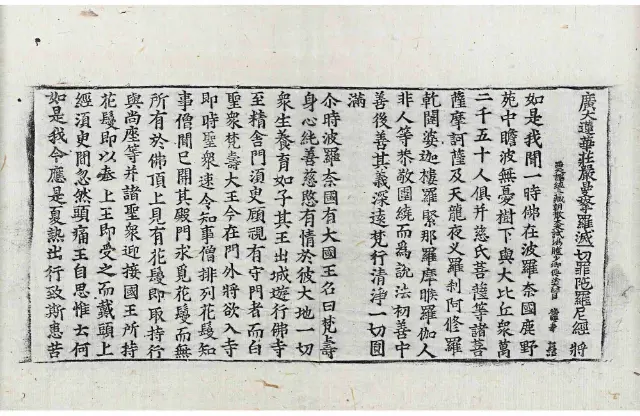 廣大蓮華莊嚴曼拏羅滅一切罪陁羅尼經 將
如是我聞一時佛在波羅奈國鹿野
苑中瞻波無憂樹下與大比丘衆萬
二千五十人俱并慈氏菩薩等諸菩
薩摩訶薩及天龍夜义羅刹阿修羅
乹闥婆迦樓羅緊那羅摩睺羅伽人
非人等恭敬圍繞而爲說法初善中
善後善其義深遠梵行清淨一切圓
滿
尒時波羅奈國有大國王名曰梵壽
身心純善慈愍有情於彼大地一切
衆生養育如子其王出城遊行佛寺
至精舍門須臾顧視有守門者而白
聖衆梵壽大王今在門外將欲入寺
即時聖衆速令知事僧排列花鬘知
事僧聞已開其殿門求覓花鬘而無
所有於佛頂上見有花鬘即取持行
與尚座等并諸聖衆迎接國王所持
花鬘即以奉上王即受之而戴頭上
經須臾間忽然頭痛王自思惟云何
如是我今應是夏熱出行致斯患苦